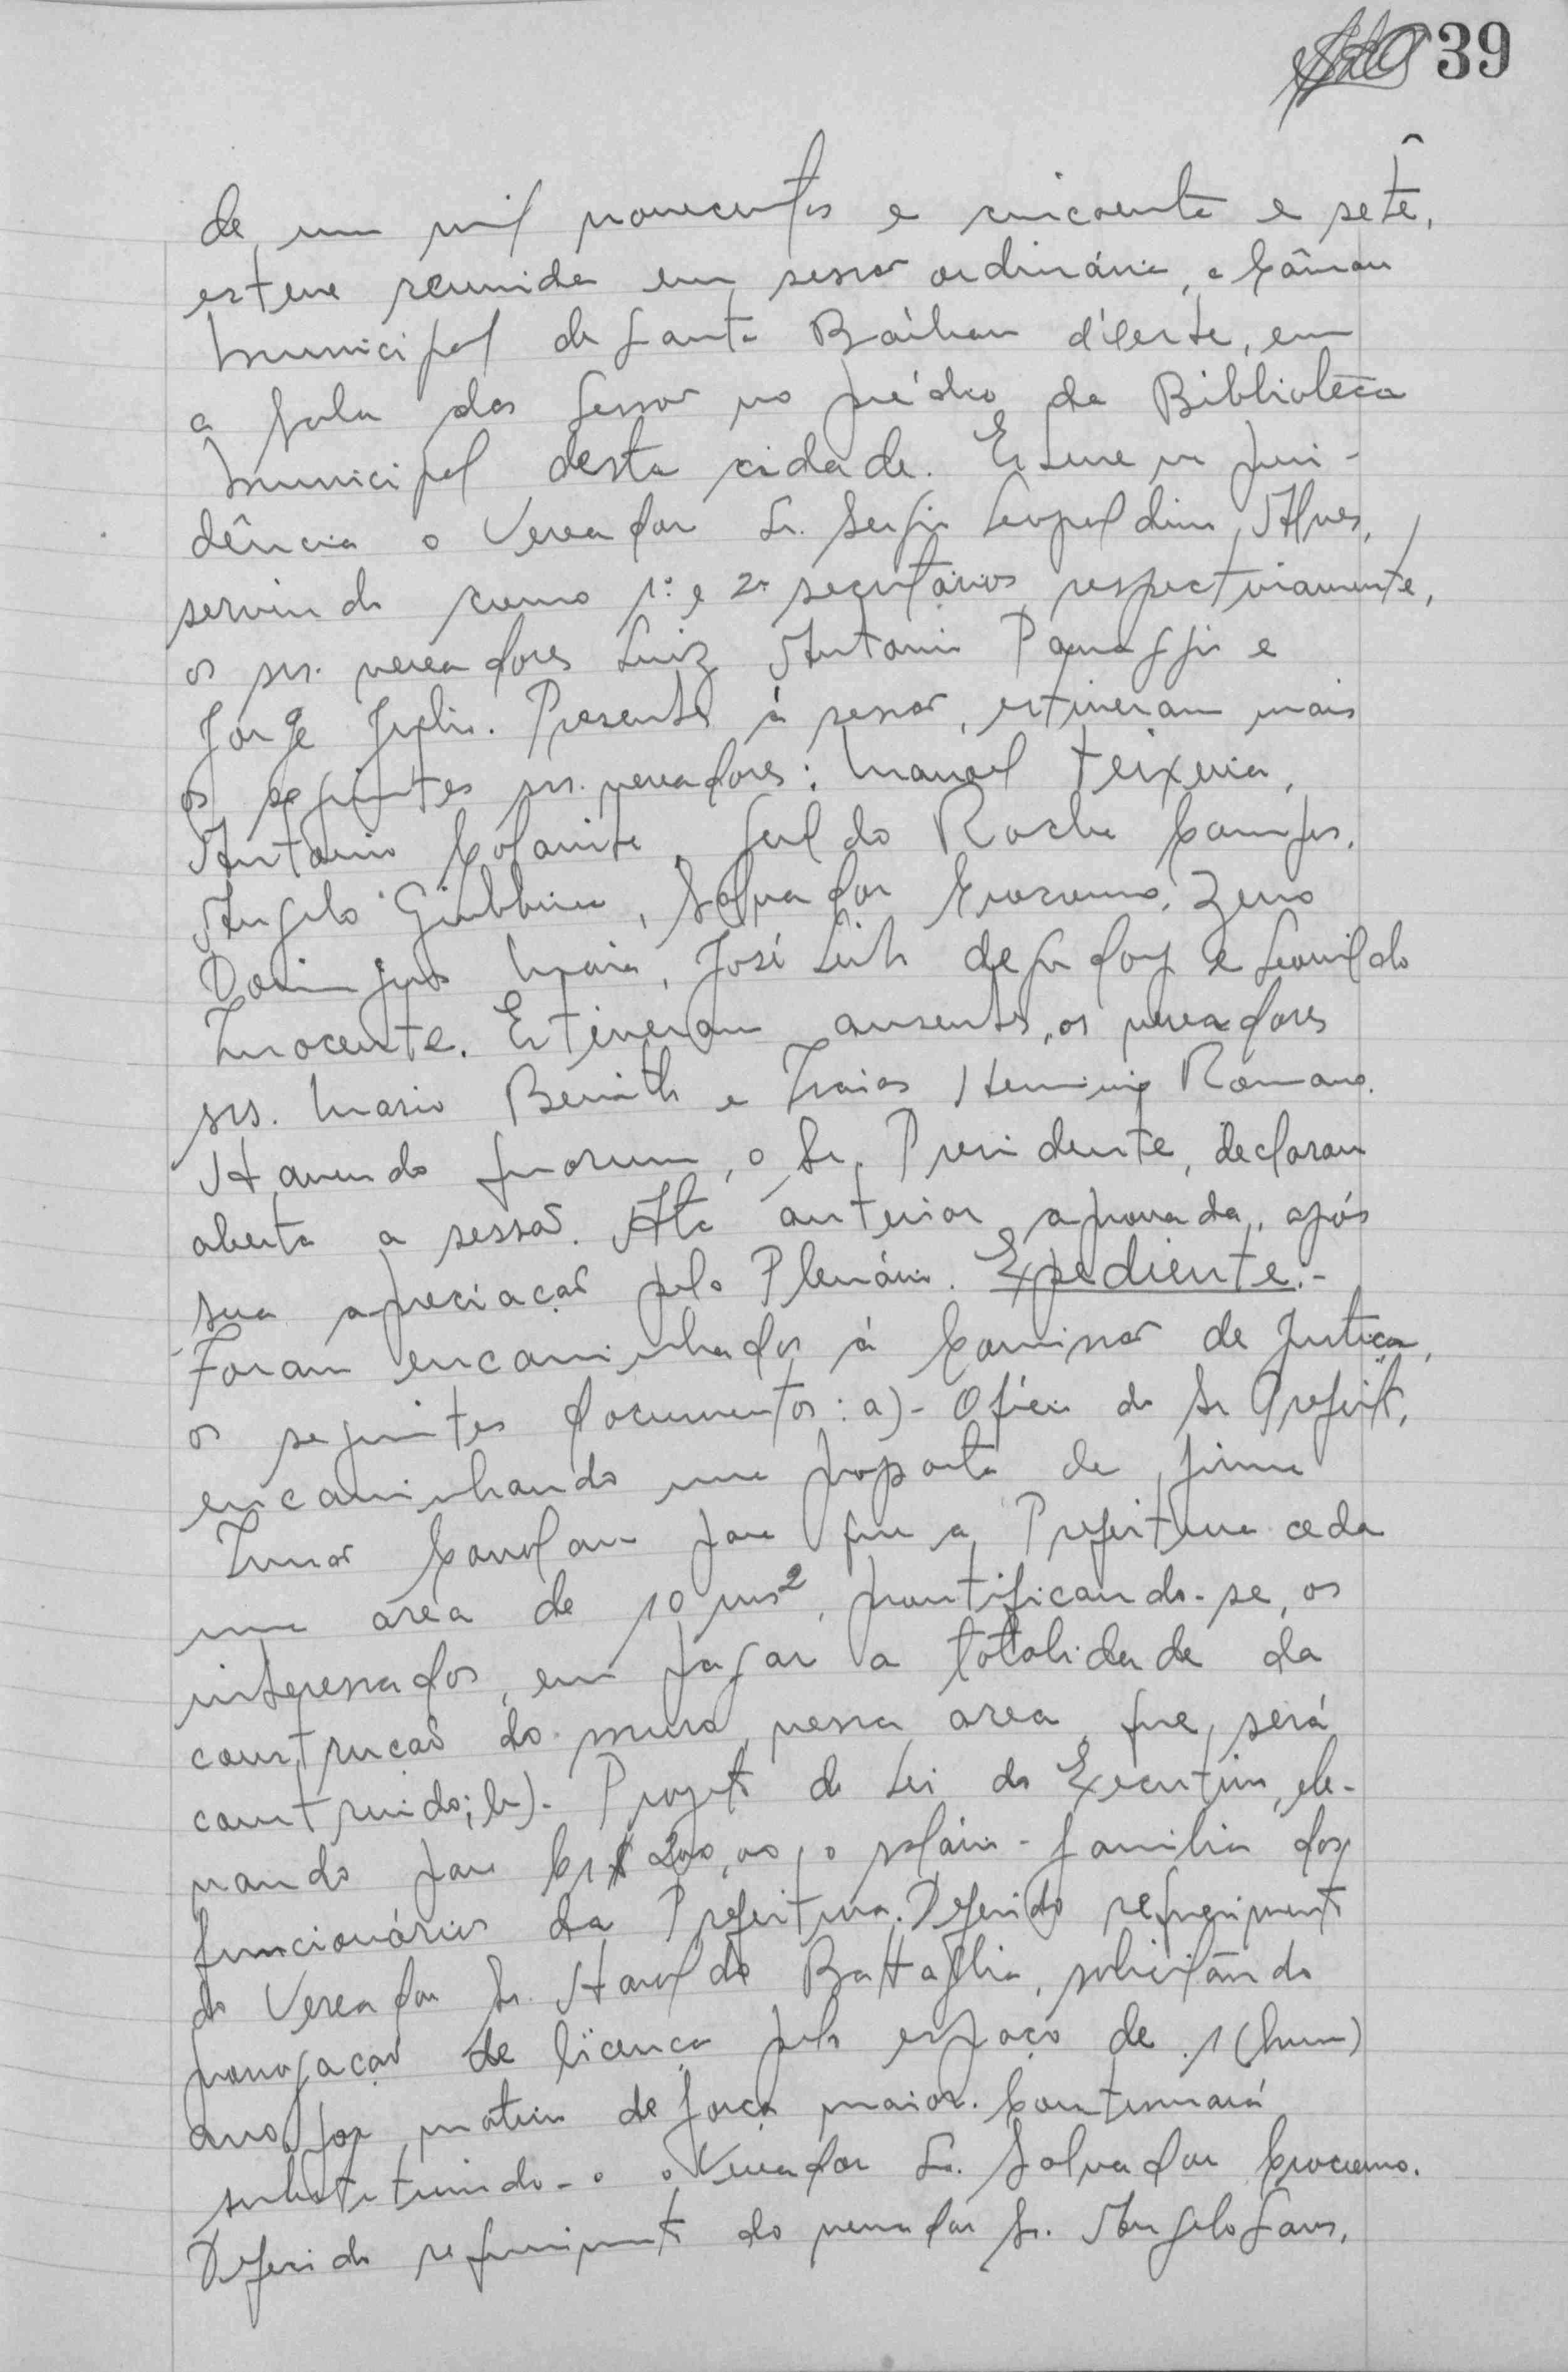 39
de um mil novecentos e cincoenta e sete,
esteve reunida em sessão ordinária, a Câmara
Municipal de Santa Bárbara d'Oeste, em
a sala das Sessões no prédio da Biblioteca
Municipal desta cidade. Esteve na presi-
dência o Vereador Sr. Sergio Leopoldino Alves,
servindo como 1º e 2º secretários respectivamente,
os srs. vereadores Luiz Antonio Panaggio e
Jorge Julio. Presentes à sessão, estiveram mais
os seguintes srs. vereadores: Manoel Teixeira,
Antonio Rocha Campos,
Angelo Giubbina, Salvador Zeno
Domingos Maia, José Leite de Godoy e Leonildo
Inocente. Estiveram ausentes, os vereadores
srs. Mario e Isaias Herminio Romano.
Havendo quorum, o Sr. Presidente, declarou
aberta a sessão. Ata anterior aprovada, após
sua apreciação pelo Plenário. Expediente.-
Foram encaminhados à Comissão de Justiça,
os seguintes documentos: a)- Ofício do Sr Prefeito,
encaminhando uma proposta da firma
Irmãos para que a Prefeitura ceda
uma área de 10 ms2, prontificando-se, os
interessados, em pagar a totalidade da
construção do muro, nessa area, que, será
construido; b)- Projeto de Lei do Executivo, ele-
vando para Cr$ 200,00, o salário-familia dos
funcionários da Prefeitura. Deferido requerimento
do Vereador Sr. Haroldo Battaglia, solicitando
prorrogação de licença pelo espaço de 1 (hum)
ano, por motivo de força maior. Continuará
substituindo-o o Vereador Sr. Salvador
Deferido requerimento do vereador Sr. Angelo Sans,